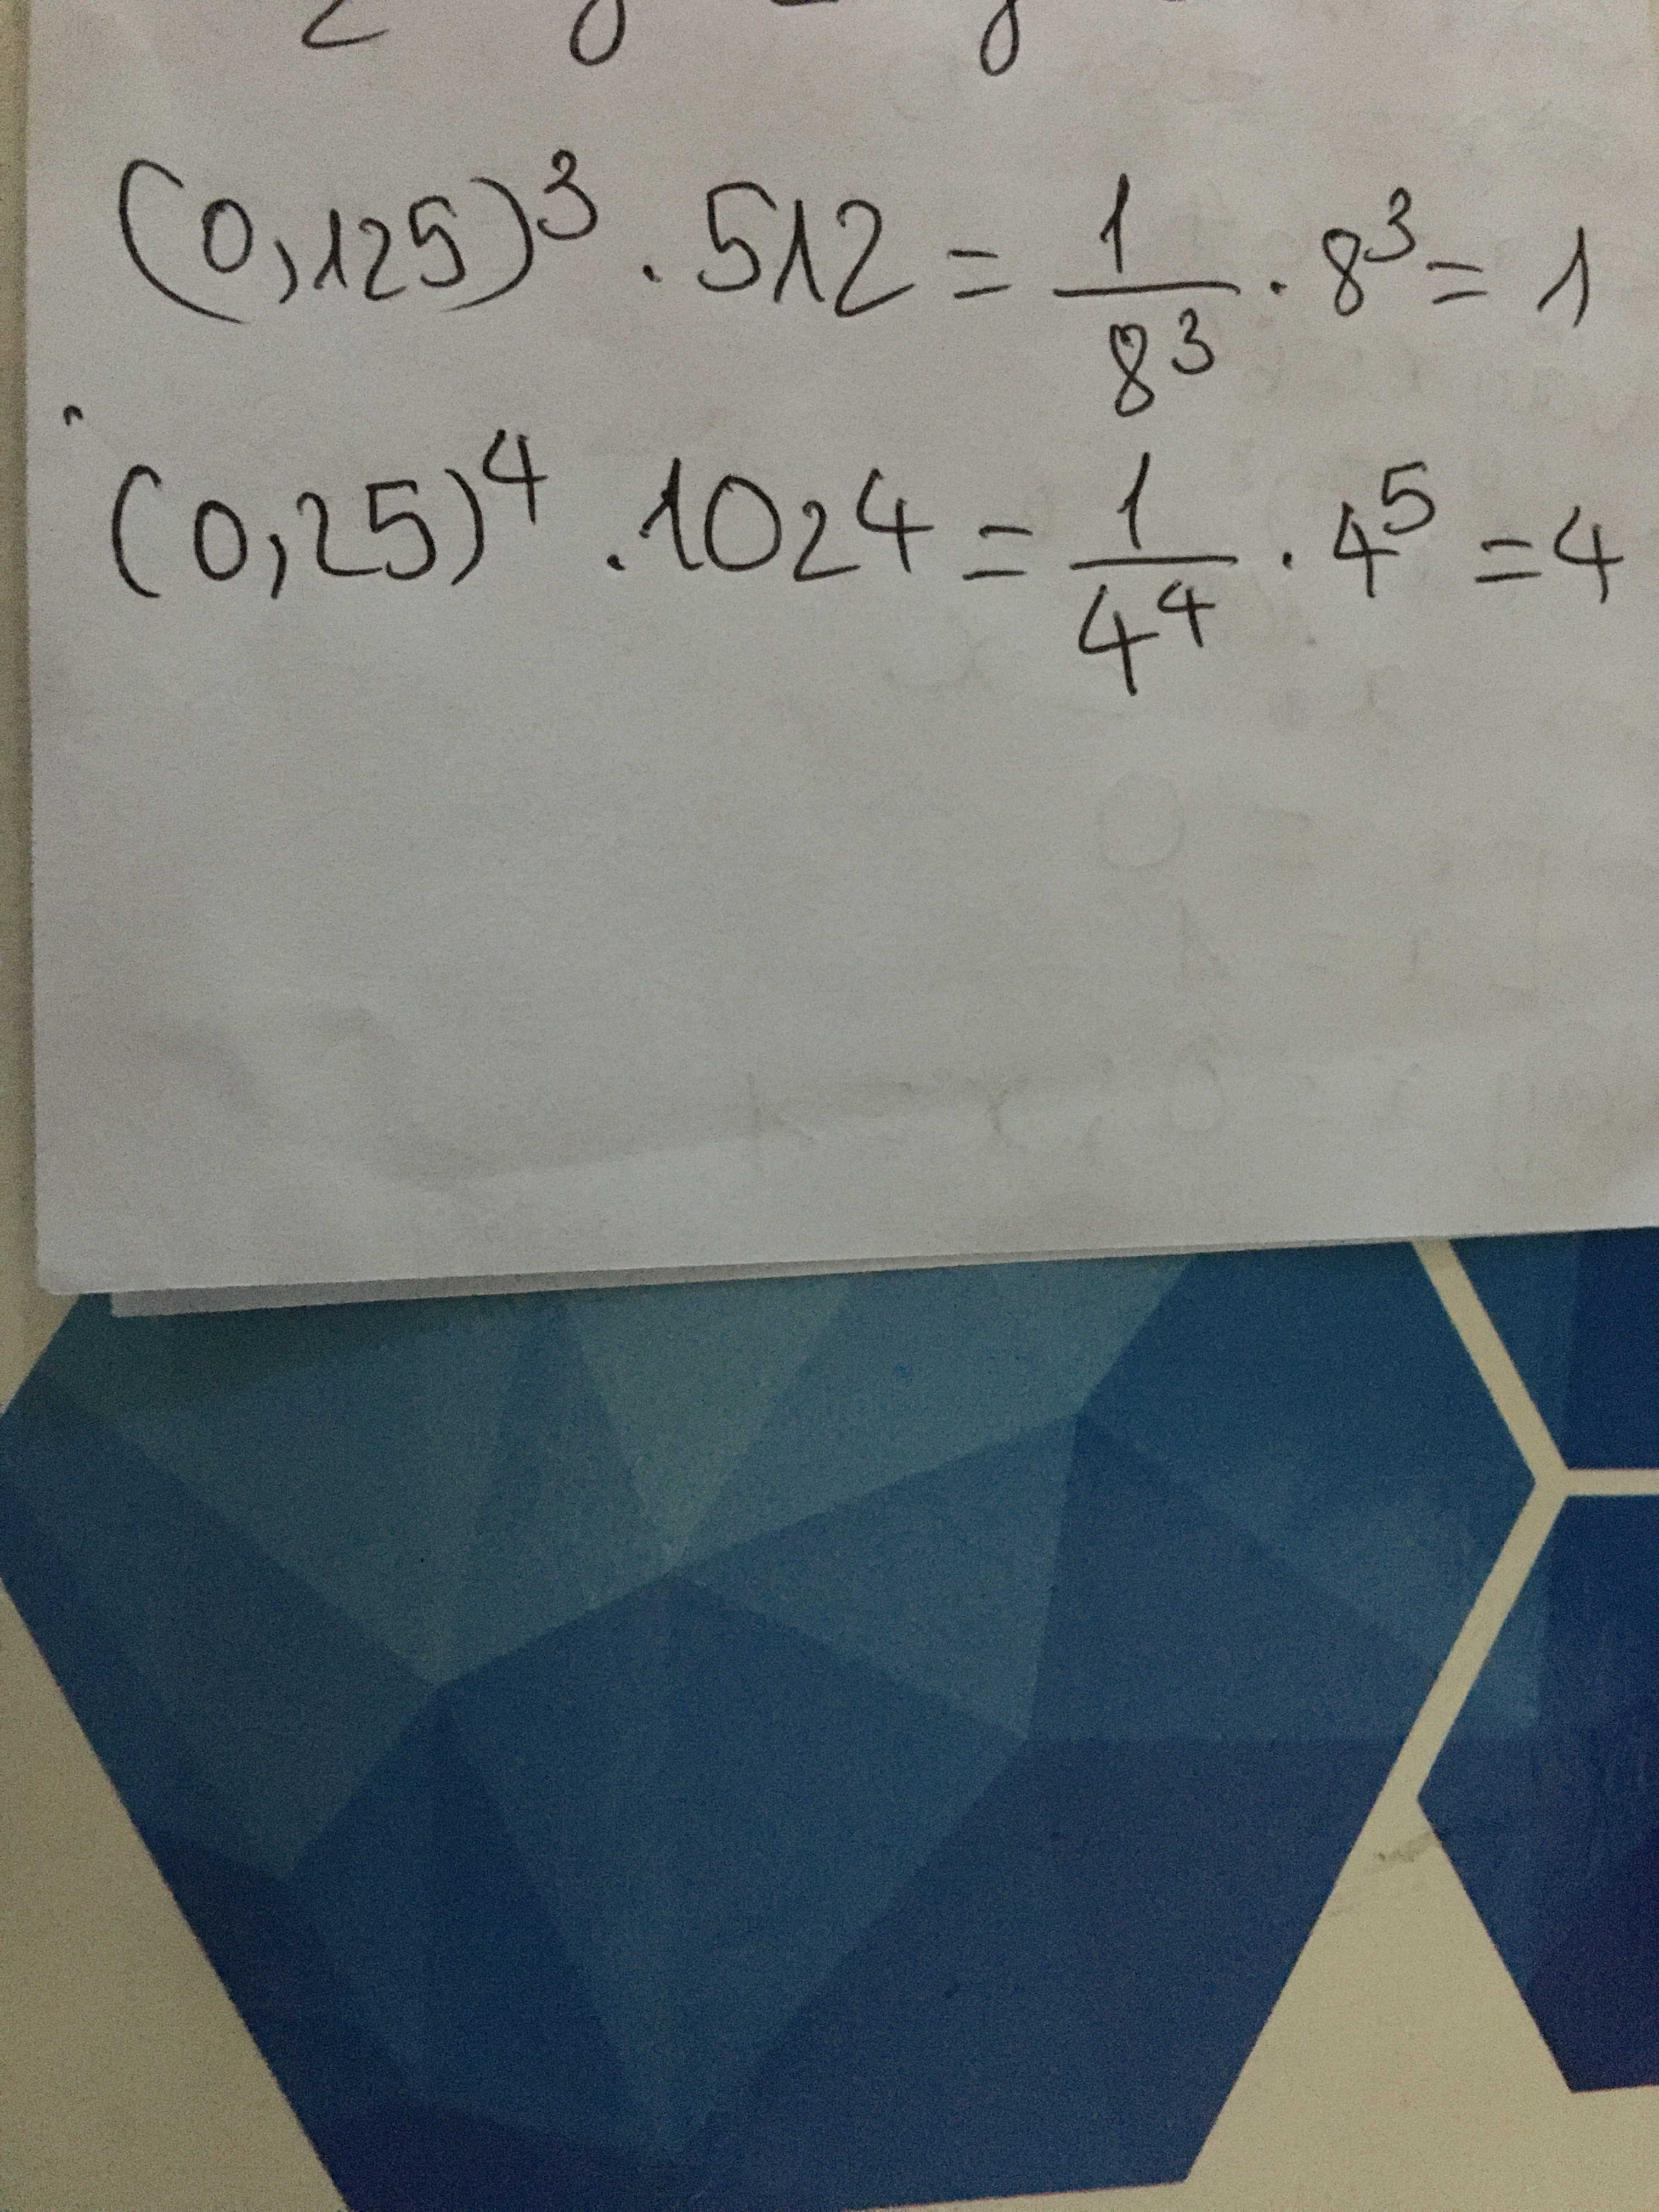 (0,125)³ . 512 = 1/8³ . 8³ = 1
(0,25)⁴ . 1024 = 1/4⁴ . 4⁵ = 4